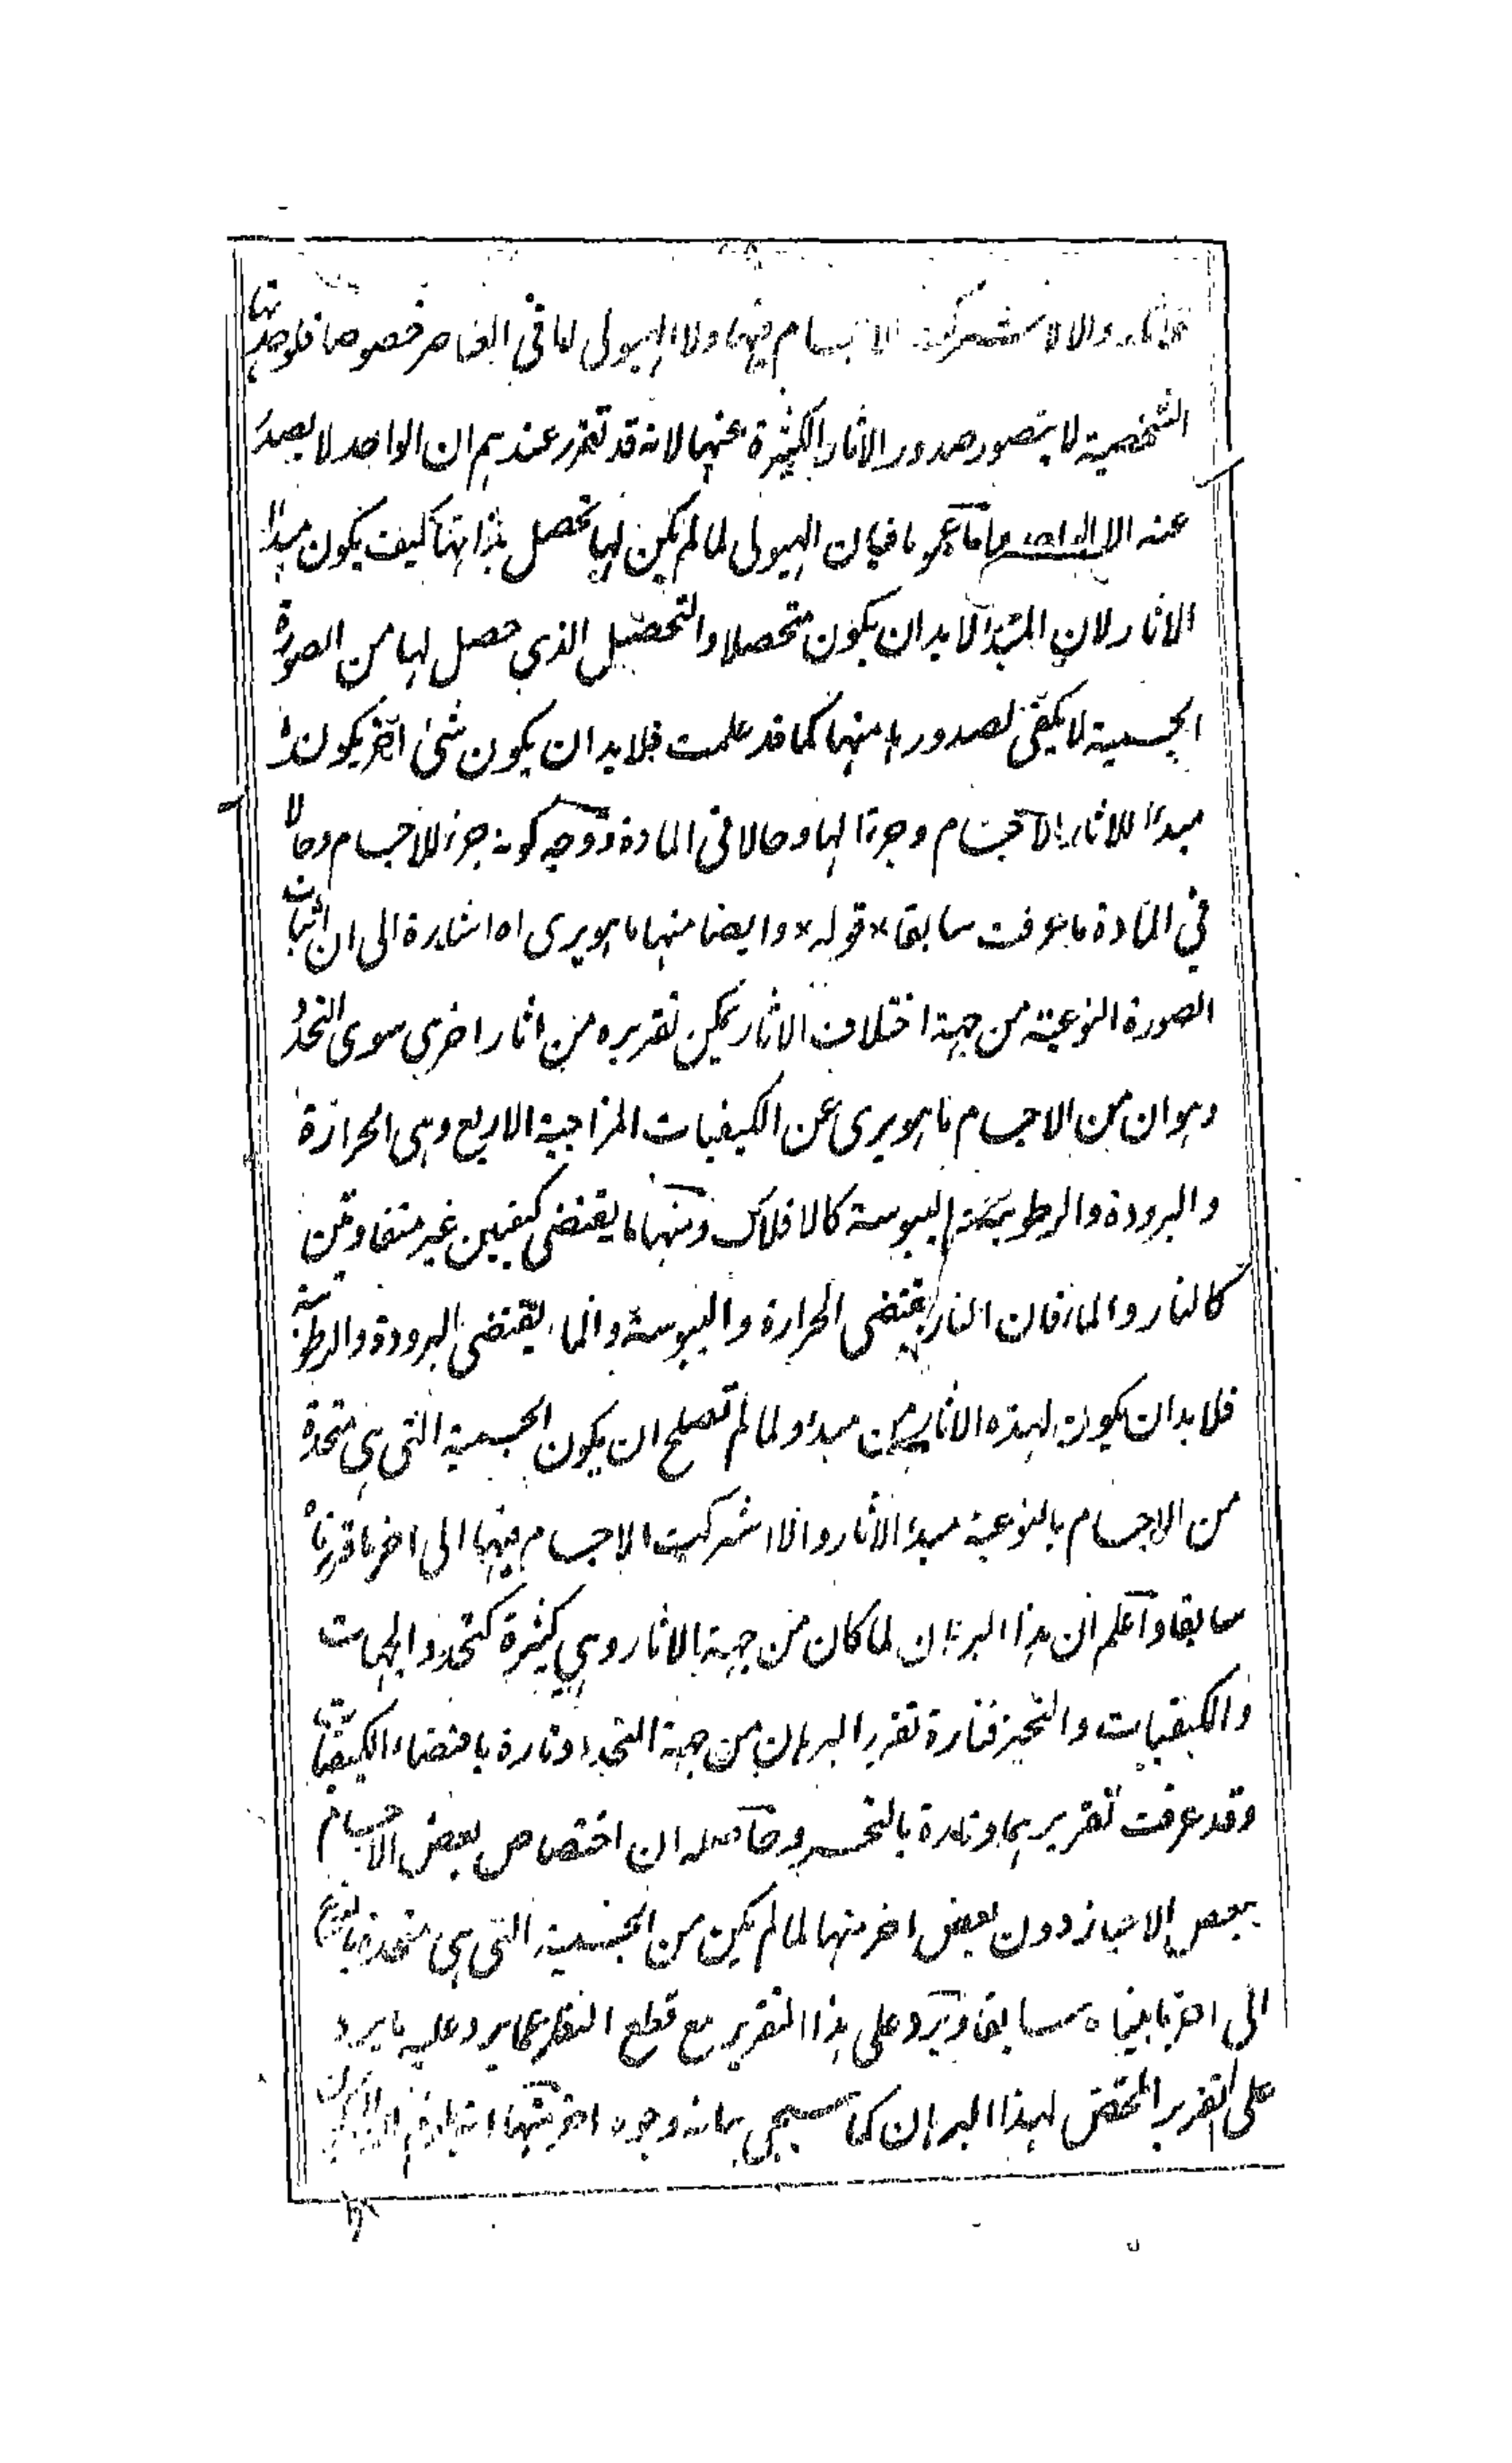 والا لاشتركت الاجسام فيها ولا الهيولى اما في العناصر خصوصا فلوحدتها
الشخصية لا يتصور صدور الاثار الكثيرة عنها لانه قد تقرر عندهم ان الواحد لا يصدر
عنه الا الواحد واما عموما فبان الهيولى لما لم يكن لها تحصل بذاتها كيف يكون مبدأ
الاثار لان المبدأ لا بد ان يكون متحصلا والتحصيل الذي حصل لها من الصورة
الجسمية لا يكفي لصدورها منها كما قد علمت فلا بد ان يكون شئ آخر يكون
مبدءا للاثار الاجسام وجزءا لها وحالا في المادة ووجه كونه جزء للاجسام وحالا
في المادة ما عرفت سابقا * قوله * وايضا منها ما هو برى اه اشارة الى ان اثبات
الصورة النوعية من جهة اختلاف الاثار يمكن تقريره من اثار اخرى سوى التحدد
وهو ان من الاجسام ما هو برى عن الكيفيات المزاجية الاربع وهى الحرارة
والبرودة والرطوبة واليبوسة كالافلاك ومنها ما يقتضى كيفيتين غير متفاوتين
كالنار والماء فان النار يقتضى الحرارة واليبوسة والماء يقتضى البرودة والرطوبة
فلا بد ان يكون لهذه الاثار من مبدء ولما لم تصلح ان يكون الجسمية التى هى متحدة
من الاجسام بالنوعية مبدء الاثار والا اشتركت الاجسام فيها الى اخر ما قررنا
سابقا واعلم ان هذا البرهان لما كان من جهة الاثار وهى كثيرة كتحدد الجهات
والكيفيات والتحيز فتارة تقرر البرهان من جهة التحدد وتارة باقتضاء الكيفيات
وقد عرفت تقريرهما وتارة بالتحيز وحاصله ان اختصاص بعض الاجسام
ببعض الاحياز دون بعض اخر منها لما لم يكن من الجسمية التى هى متحدة بالنوع
الى اخر ما بيناه سابقا ويرد على هذا التقرير مع قطع النظر عما يرد عليه ما يرد
على التقرير المحقق لهذا البرهان كما سيجى بيانه وجوه اخر منها انه